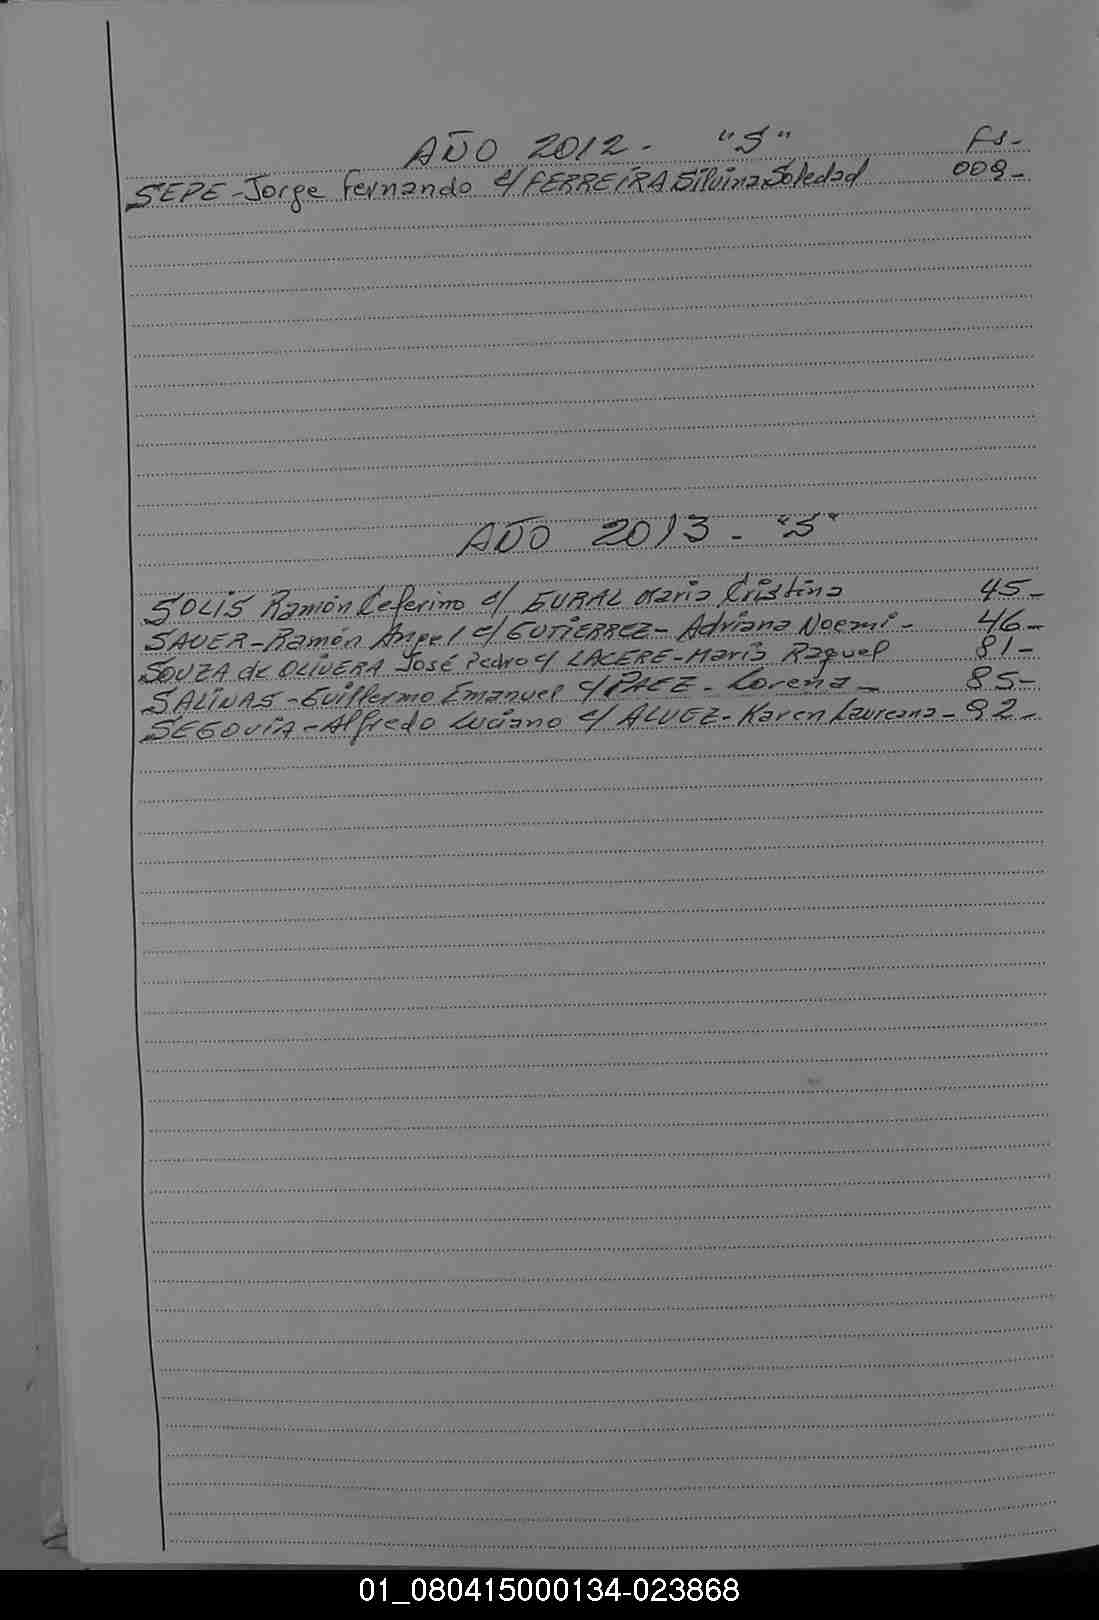 AÑO 2012 - "S" Fs-
SEPE - Jorge Fernando c/ FERREIRA Silvina Soledad 009-
AÑO 2013 - "S"
SOLIS Ramón Ceferino c/ GURAL Maria Cristina 45-
SAUER - Ramón Angel c/ GUTIERREZ - Adriana Noemi - 46-
SOUZA de OLIVERA José Pedro c/ LACERE - Maria Raquel 81-
SALINAS - Guillermo Emanuel c/ PAEZ - Lorena - 85-
SEGOVIA - Alfredo Luciano c/ ALVEZ - Karen Laureana - 92-
01_080415000134-023868